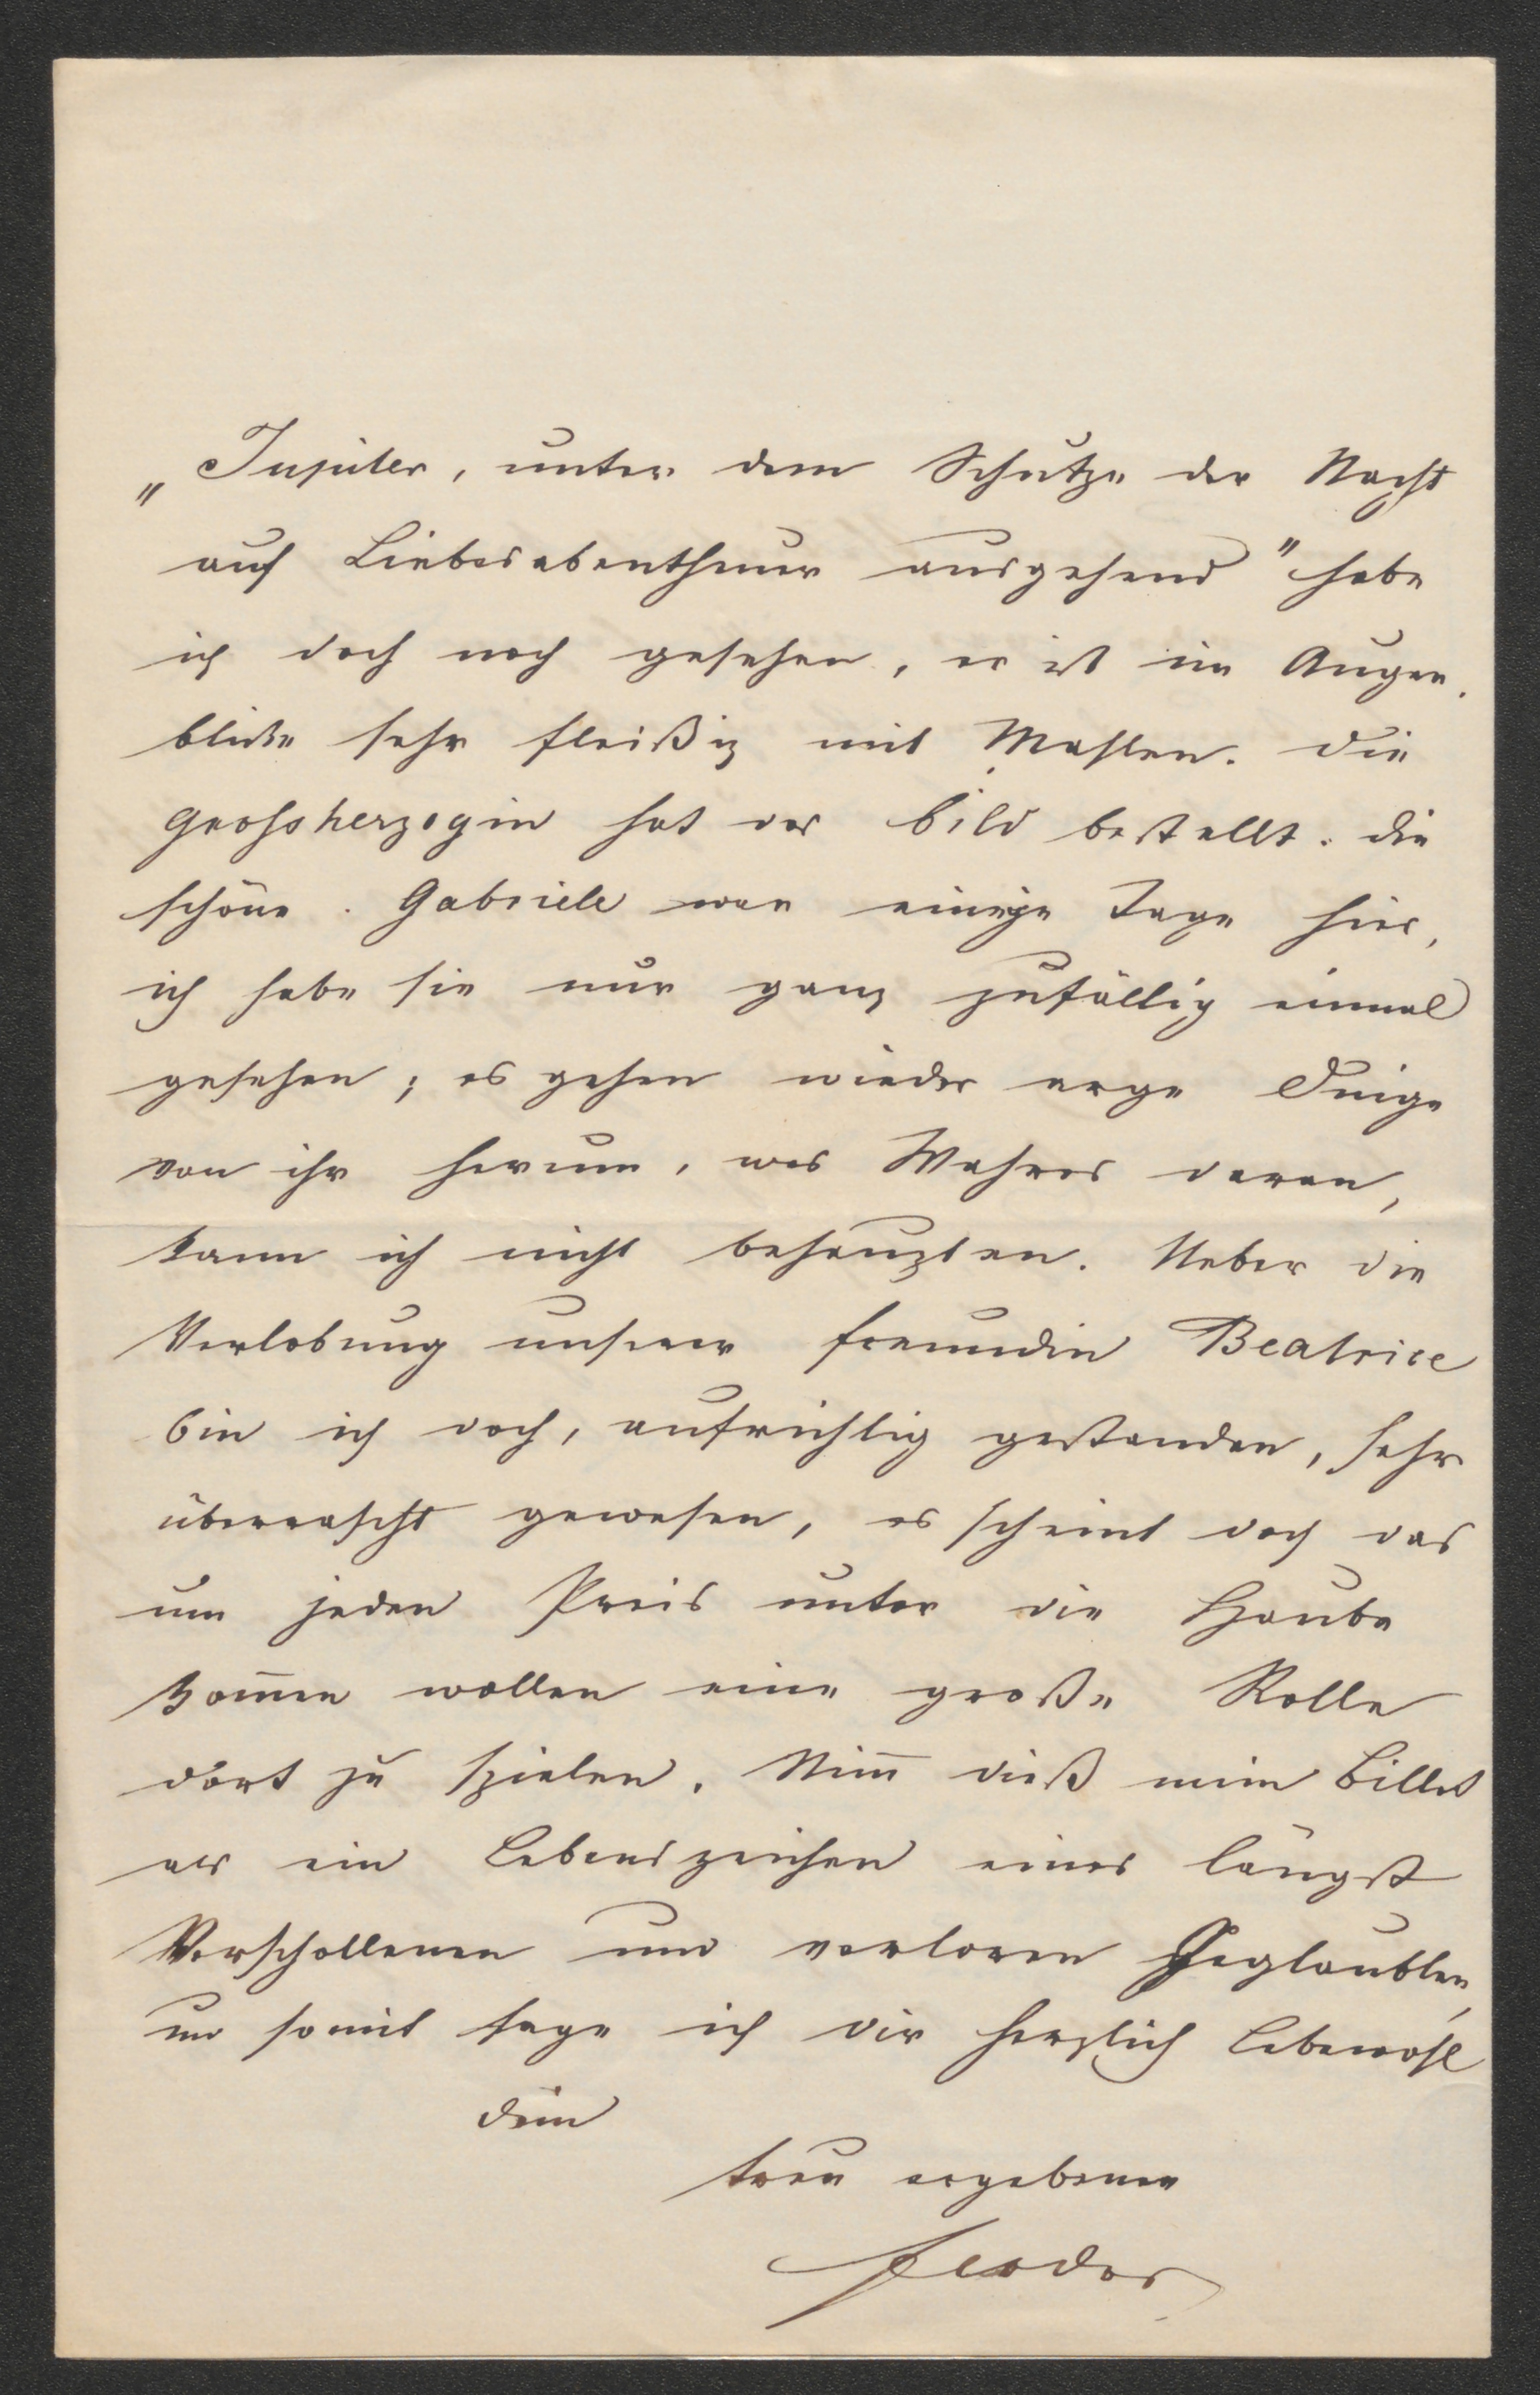 „Jupiter, unter dem Schutze der Nacht
auf Liebesabentheuer ausgehend" habe
ich doch noch gesehen, er ist im Augen
blicke sehr fleißig mit Mahlen. Die
Grossherzogin hat das Bild bestellt. Die
schöne Gabriele war einige Tage hier,
ich habe sie nur ganz zufällig einmal
gesehen; es gehen wieder arge Dinge
von ihr herum, was Wahres daran,
kann ich nicht behaupten. Ueber die
Verlobung unserer Freundin Beatrice
bin ich doch, aufrichtig gestanden, sehr
überrascht gewesen, es scheint doch das
um jeden Preis unter die Haube
kom̄en wollen eine große Rolle
dort zu spielen. Nim̄ dieß mein Billet
als ein Lebenszeichen eines längst
Verschollenen und verloren Geglaubten,
und somit sage ich dir herzlich Lebewohl
Dein
treu ergebener
Feodor